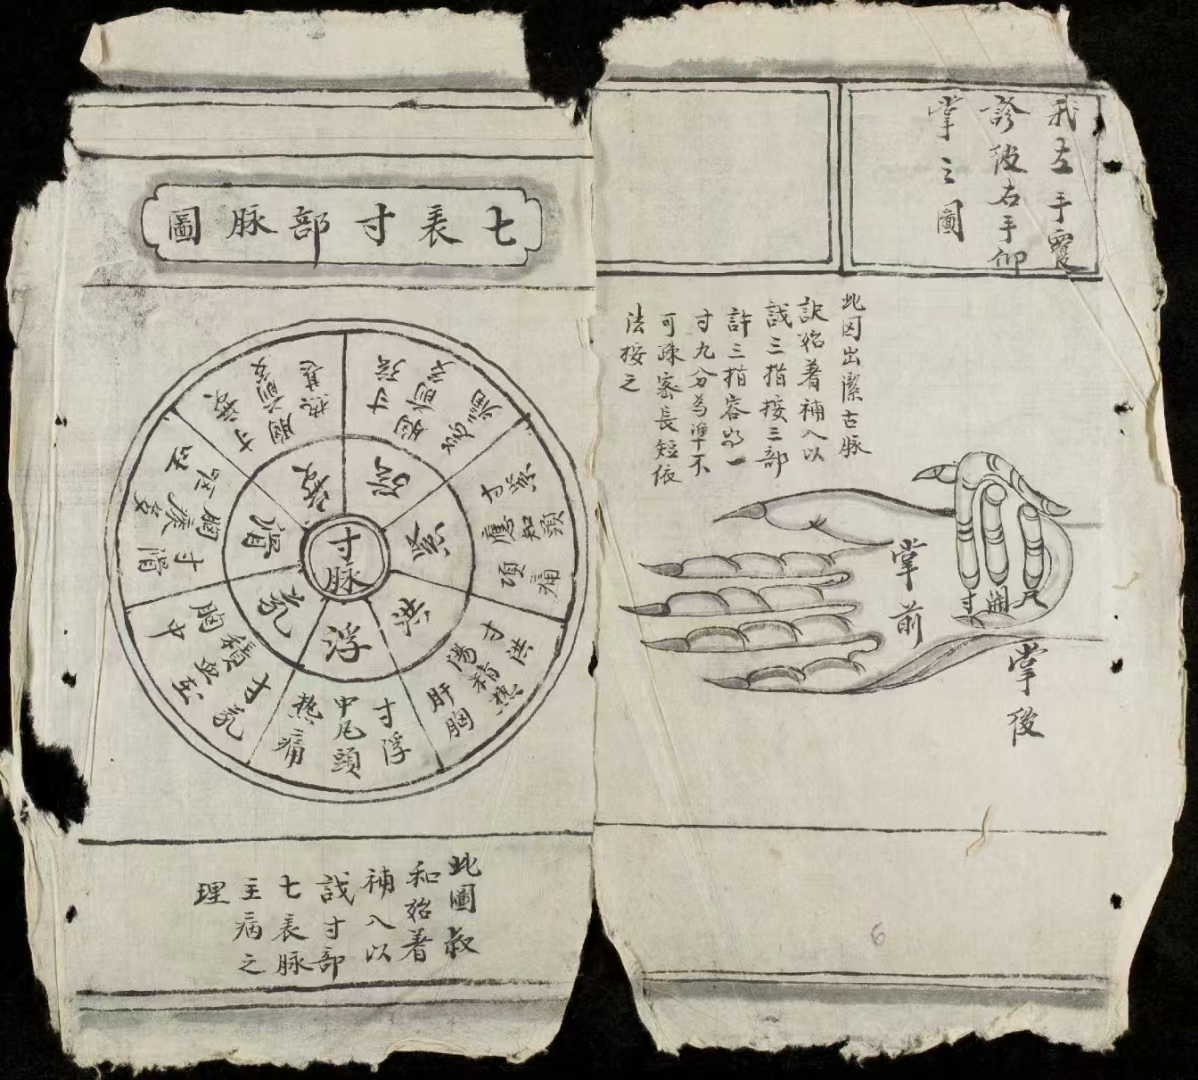 我左手覆
診彼右手仰
掌之圖
此因出潔古脉
訣始著補入以
識三指按三部
許三指容為一
寸九分為準不
可疎密長短依
法按之
掌前
寸關尺
掌後
七表寸部脉圖
寸脉
浮
芤
滑
弦
緊
洪
寸浮
中風頭
热痛
寸芤
積血在
胸中
寸滑
胸痰
嘔吐
胸前
胸前
寸緊
項痛
寸洪
陽
热
肝胸
此圖叔
和始著
補入以
識寸部
七表脉
主病之
理
6